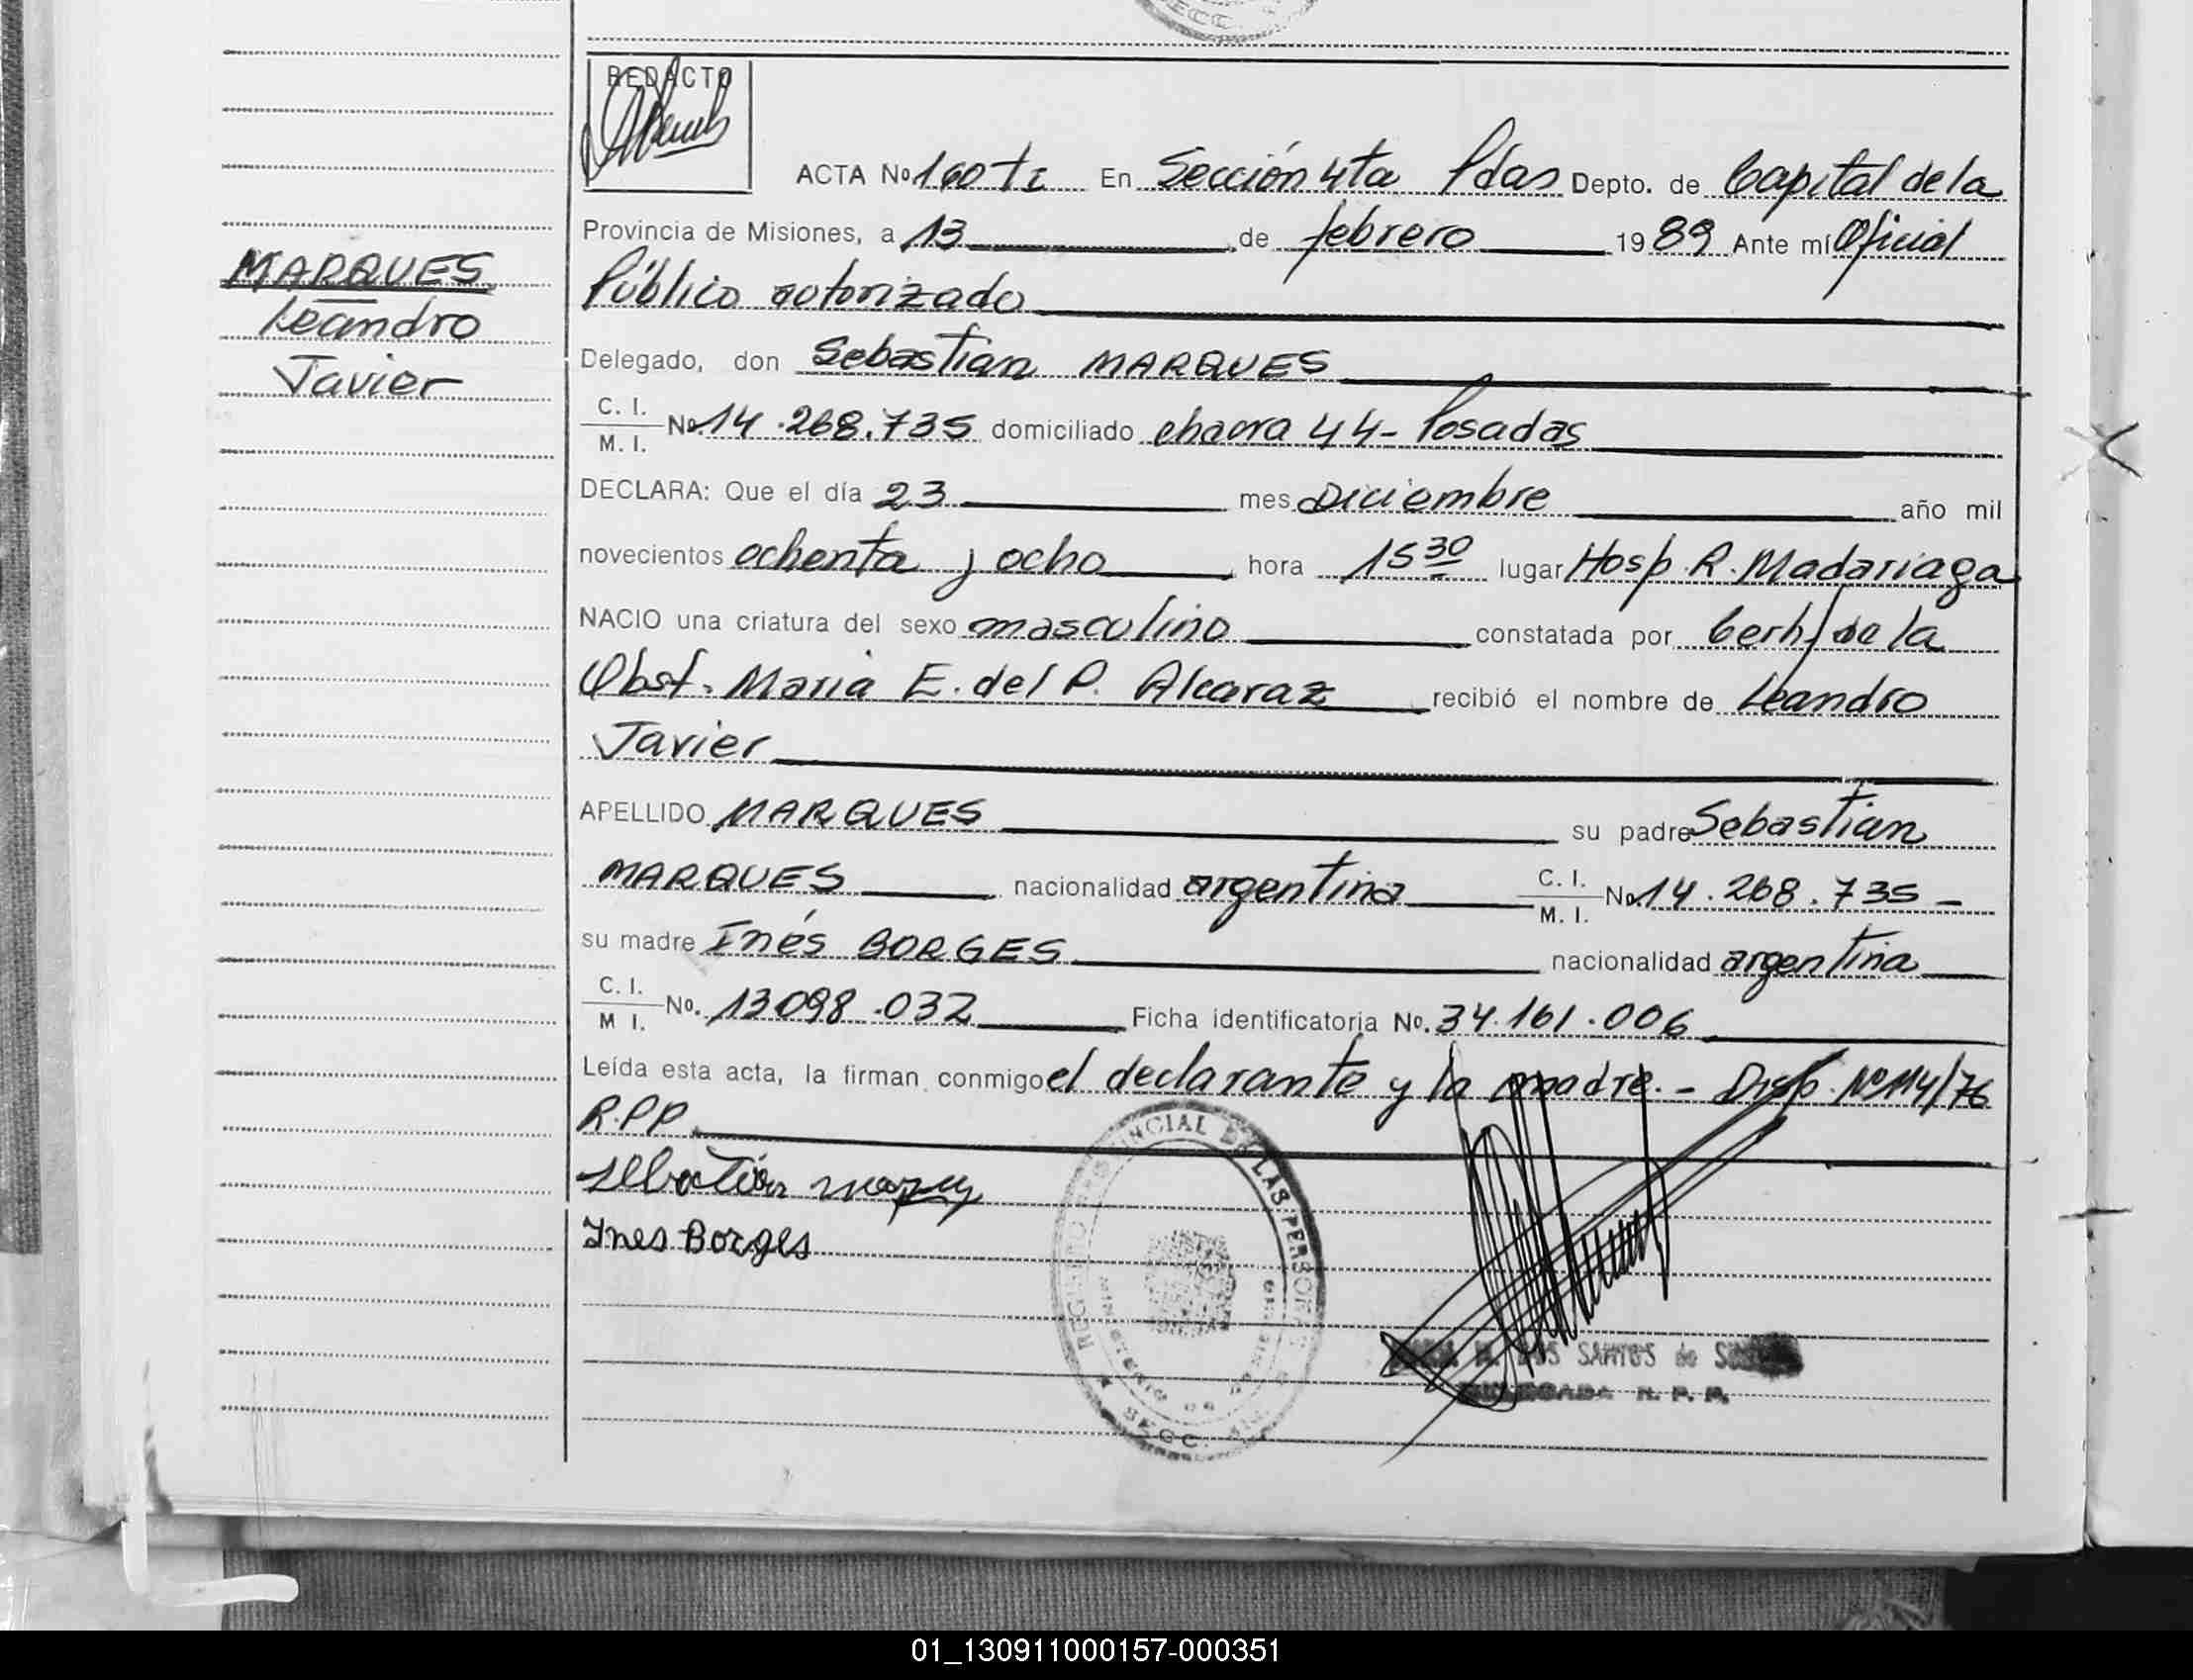 REDACTO
ACTA Nº 160 tI En Sección 4ta Pdas Depto. de Capital de la
Provincia de Misiones, a 13 de febrero 1989 Ante mí Oficial
Público autorizado
MARQUES
Leandro
Javier
Delegado, don Sebastian MARQUES
C. I.
M. I.
Nº 14.268.735 domiciliado chacra 44- Posadas
DECLARA: Que el día 23 mes Diciembre año mil
novecientos ochenta y ocho hora 15 30 lugar Hosp. R. Madariaga
NACIO una criatura del sexo masculino constatada por Cert/ de la
Obst. Maria E. del P. Alcaraz recibió el nombre de Leandro
Javier
APELLIDO MARQUES su padre Sebastian
MARQUES nacionalidad argentina C. I. M. I. Nº 14.268.735-
su madre Inés BORGES nacionalidad argentina
C. I.
M I.
Nº. 13098.032 Ficha identificatoria Nº. 34.161.006
Leída esta acta, la firman conmigo el declarante y la madre.- Disp. Nº 114/76
R.P.P.
Sebastián
Ines Borges
REGISTRO PROVINCIAL DE LAS PERSONAS
SECC.
DOS SANTOS de
DELEGADA R. P. P.
01_130911000157-000351